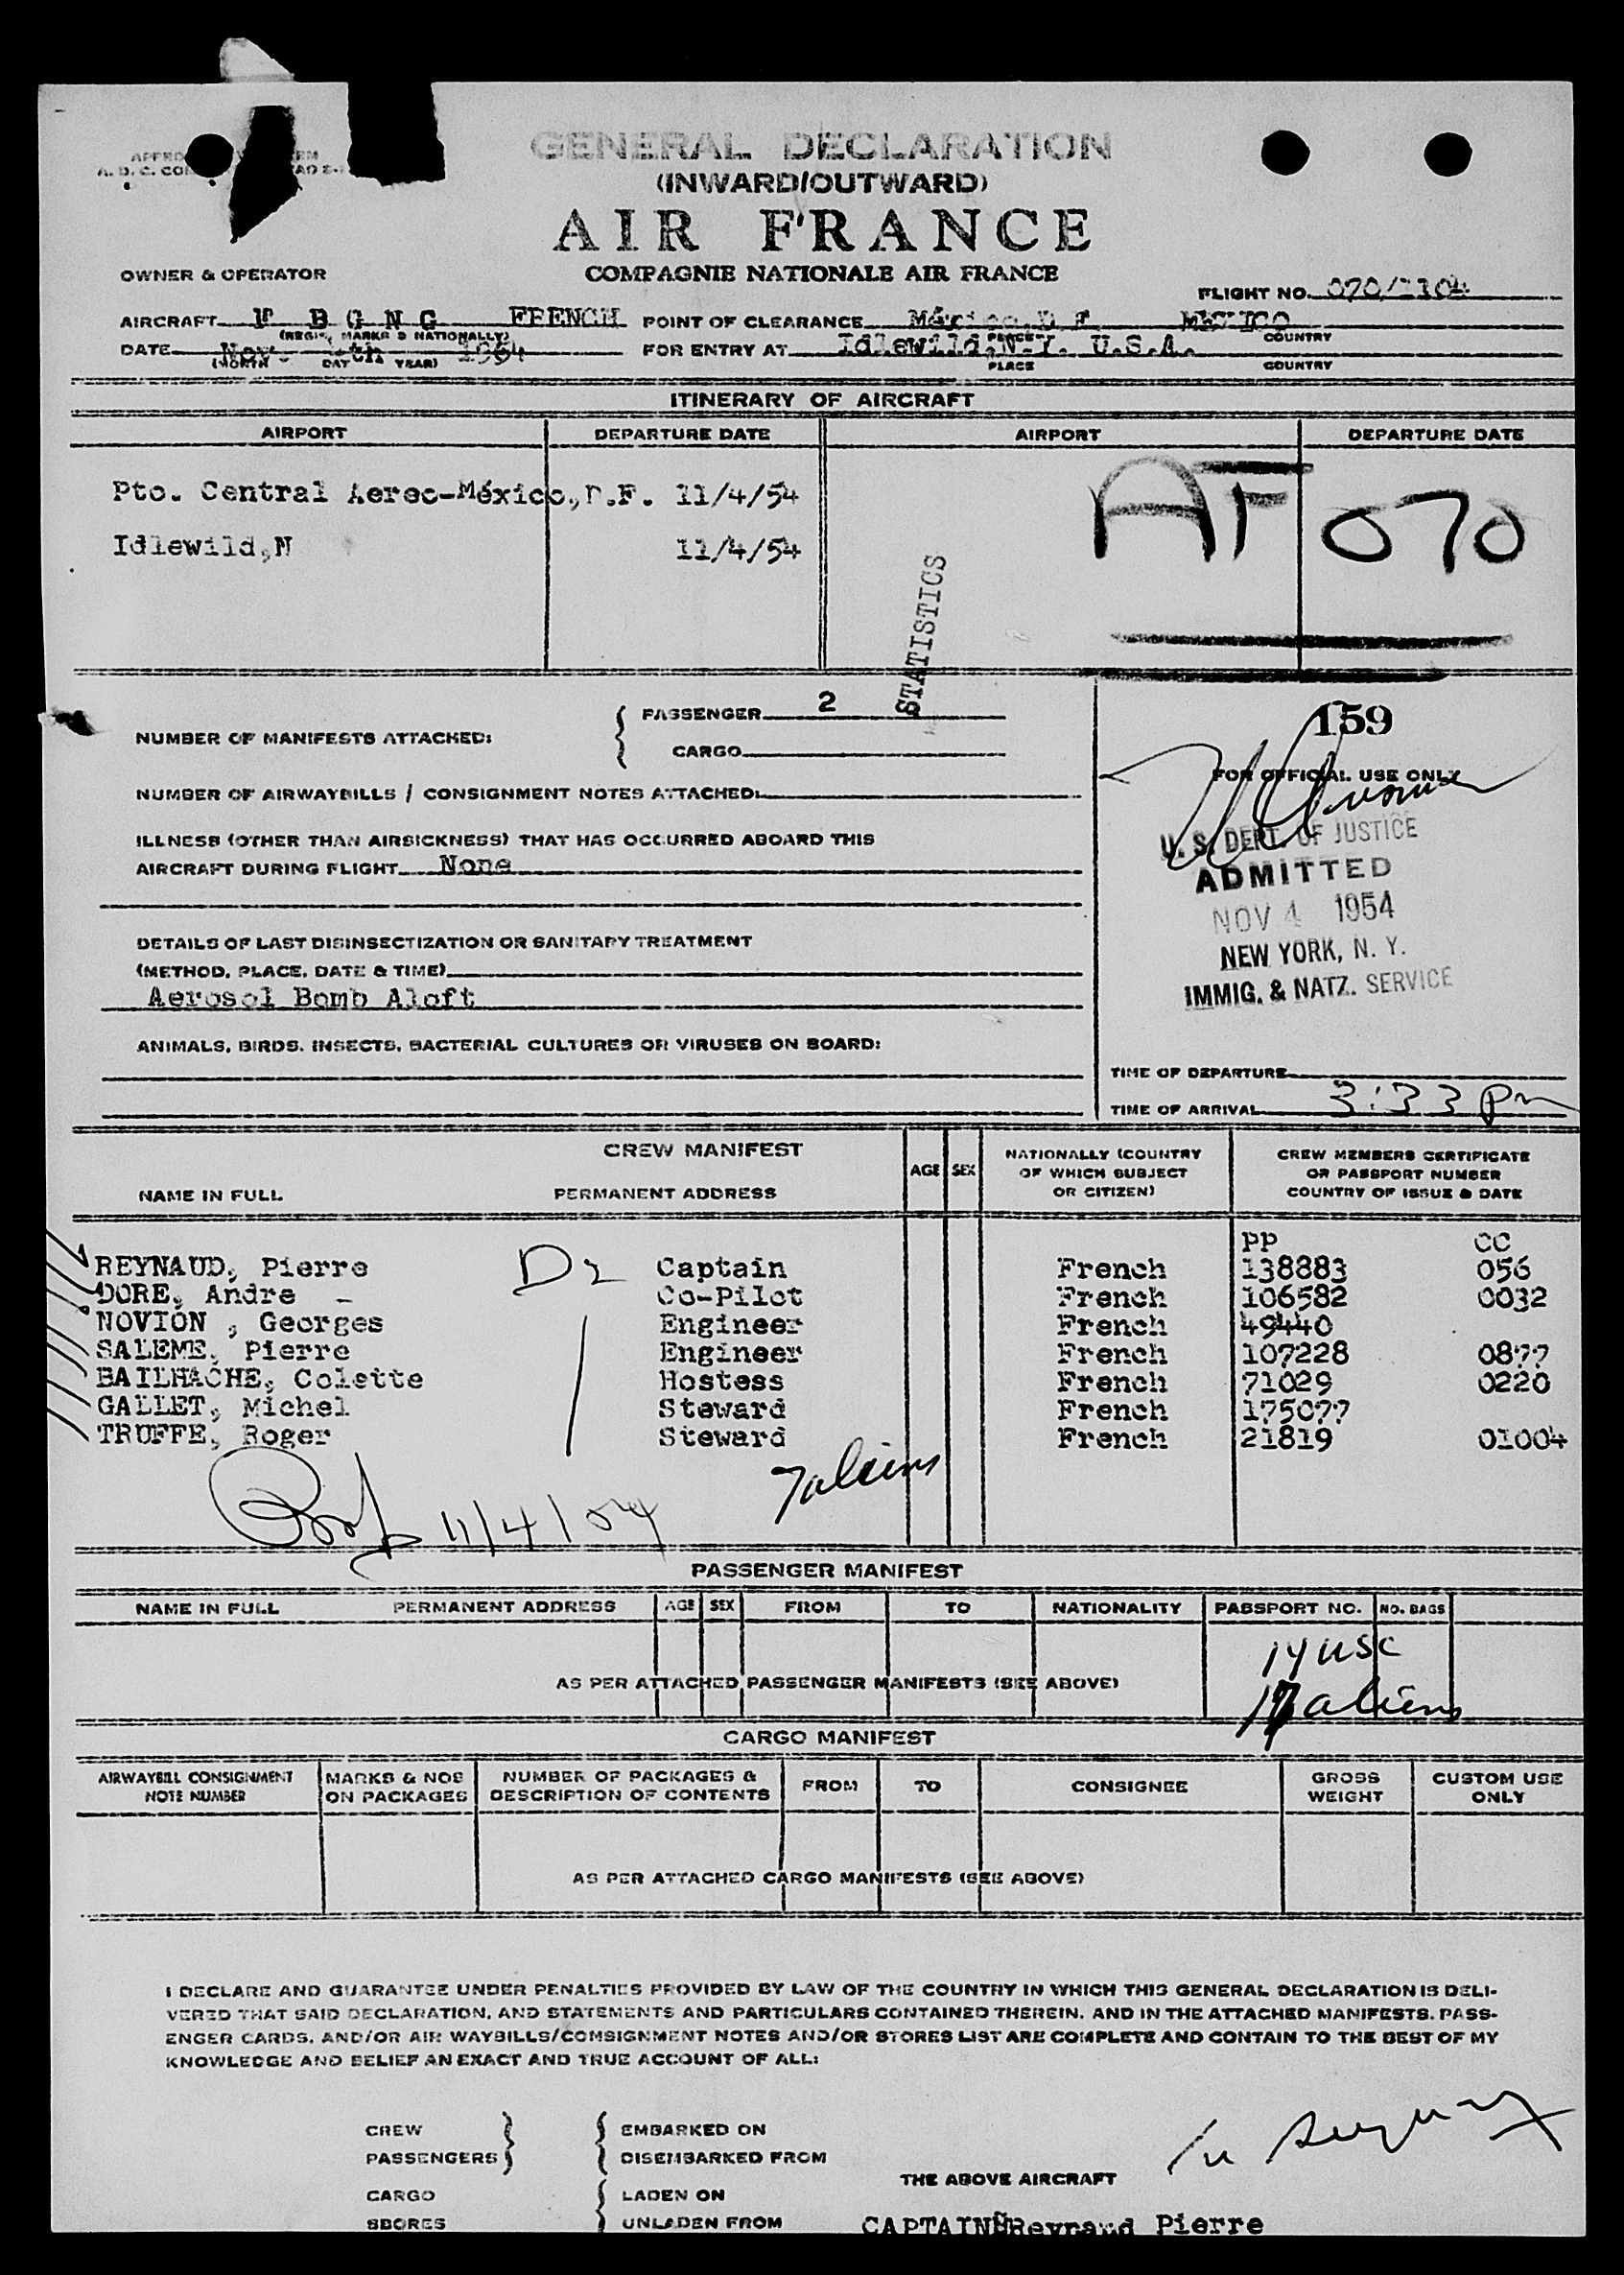 GENERAL DECLARATION
(INWARD/OUTWARD)
AIR FRANCE
COMPAGNIE NATIONALE AIR FRANCE
OWNER & OPERATOR
FLIGHT NO. 070/
AIRCRAFT F B G N G FRENCH POINT OF CLEARANCE México, D F MEXICO
(REGIS. MARKS & NATIONALLY) PLACE COUNTRY
DATE Nov. 4th 1954 FOR ENTRY AT Idlewild, N.Y. U.S.A.
(MONTH DAY YEAR) PLACE COUNTRY
ITINERARY OF AIRCRAFT
AIRPORT DEPARTURE DATE AIRPORT DEPARTURE DATE
Pto. Central Aereo-México, D.F. 11/4/54
AF 070
Idlewild, N 11/4/54
STATISTICS
NUMBER OF MANIFESTS ATTACHED: PASSENGER 2
CARGO
159
FOR OFFICIAL USE ONLY
NUMBER OF AIRWAYBILLS / CONSIGNMENT NOTES ATTACHED:
ILLNESS (OTHER THAN AIRSICKNESS) THAT HAS OCCURRED ABOARD THIS
AIRCRAFT DURING FLIGHT None
U. S. DEPT. OF JUSTICE
ADMITTED
NOV 4 1954
NEW YORK, N. Y.
IMMIG. & NATZ. SERVICE
DETAILS OF LAST DISINSECTIZATION OR SANITARY TREATMENT
(METHOD, PLACE, DATE & TIME)
Aerosol Bomb Aloft
ANIMALS, BIRDS, INSECTS, BACTERIAL CULTURES OR VIRUSES ON BOARD:
TIME OF DEPARTURE
TIME OF ARRIVAL 3:33 pm
CREW MANIFEST
NAME IN FULL PERMANENT ADDRESS AGE SEX NATIONALLY (COUNTRY OF WHICH SUBJECT OR CITIZEN) CREW MEMBERS CERTIFICATE OR PASSPORT NUMBER COUNTRY OF ISSUE & DATE
PP CC
REYNAUD, Pierre Captain French 138883 056
DORE, Andre - Co-Pilot French 106582 0032
NOVION , Georges Engineer French 49440
SALEME, Pierre Engineer French 107228 08??
BAILHACHE, Colette Hostess French 71029 0220
GALLET, Michel Steward French 1750??
TRUFFE, Roger Steward French 21819 01004
7 aliens
11/4/54
PASSENGER MANIFEST
NAME IN FULL PERMANENT ADDRESS AGE SEX FROM TO NATIONALITY PASSPORT NO. NO. BAGS
14 USC
AS PER ATTACHED PASSENGER MANIFESTS (SEE ABOVE)
17 aliens
CARGO MANIFEST
AIRWAYBILL CONSIGNMENT NOTE NUMBER MARKS & NOS ON PACKAGES NUMBER OF PACKAGES & DESCRIPTION OF CONTENTS FROM TO CONSIGNEE GROSS WEIGHT CUSTOM USE ONLY
AS PER ATTACHED CARGO MANIFESTS (SEE ABOVE)
I DECLARE AND GUARANTEE UNDER PENALTIES PROVIDED BY LAW OF THE COUNTRY IN WHICH THIS GENERAL DECLARATION IS DELI-
VERED THAT SAID DECLARATION, AND STATEMENTS AND PARTICULARS CONTAINED THEREIN, AND IN THE ATTACHED MANIFESTS, PASS-
ENGER CARDS, AND/OR AIR WAYBILLS/CONSIGNMENT NOTES AND/OR STORES LIST ARE COMPLETE AND CONTAIN TO THE BEST OF MY
KNOWLEDGE AND BELIEF AN EXACT AND TRUE ACCOUNT OF ALL:
CREW EMBARKED ON
PASSENGERS DISEMBARKED FROM
THE ABOVE AIRCRAFT
CARGO LADEN ON
SBORES UNLADEN FROM
CAPTAIN Reynaud Pierre